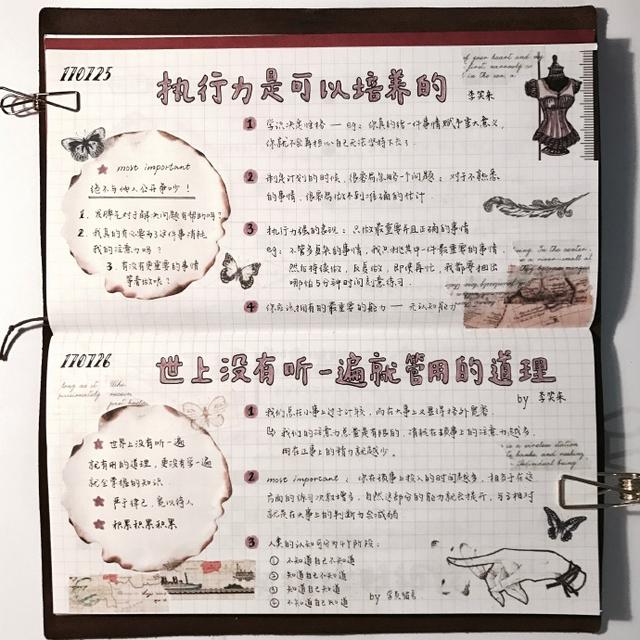 170725
执行力是可以培养的
李笑来
most important
绝不与他人公开争吵！
1. 发脾气对于解决问题有帮助吗？
2. 我真的有必要为了这件事情耗
我的注意力吗？
3. 有没有更重要的事情
等着做呢？
1 学识决定性格 — eg：你真的给一件事情赋予重大意义，
你就不会再担心自己无法坚持下去了.
2 制定计划的时候，很容易忽略一个问题：对于不熟悉
的事情，很容易做不到准确的估计
3 执行力强的表现：只做最重要并且正确的事情
eg：不管多复杂的事情，我只挑其中一件最重要的事情，
然后持续做，反复做，即使再忙，我都要抽出
哪怕5分钟时间刻意练习.
4 你应该拥有的最重要的能力 — 元认知能力
170726
世上没有听一遍就管用的道理
by 李笑来
世界上没有听一遍
就有用的道理，更没有学一遍
就全掌握的知识.
严于律己，宽以待人
积累积累积累
1 我们总在小事上过于计较，而在大事上又显得格外宽容.
我们的注意力总量是有限的，消耗在琐事上的注意力越多，
用在正事上的精力就越少.
2 most important：你在琐事上投入的时间越多，相当于在这
方面的练习次数增多，自然这部分的能力就会提升，与之相对
就是在大事上的判断力会减弱
3 人类的认知可分为4个阶段：
① 不知道自己不知道
② 知道自己不知道
③ 知道自己知道
④ 不知道自己知道
by